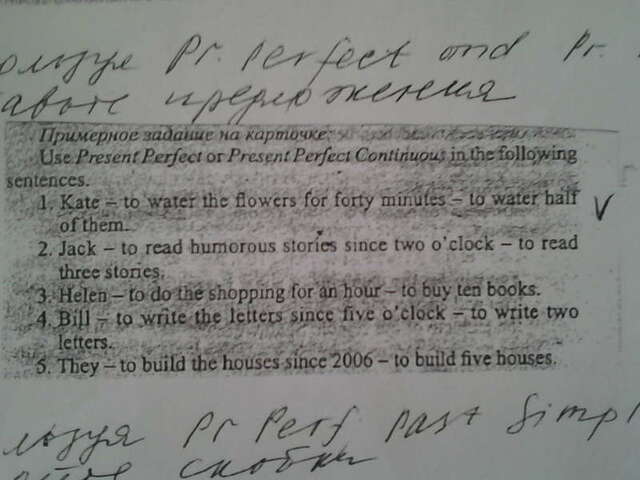 Pr. Perfect and Pr.
предложения
Примерное задание на карточке:
Use Present Perfect or Present Perfect Continuous in the following
sentences.
1. Kate – to water the flowers for forty minutes – to water half
of them.
2. Jack – to read humorous stories since two o'clock – to read
three stories.
3. Helen – to do the shopping for an hour – to buy ten books.
4. Bill – to write the letters since five o'clock – to write two
letters.
5. They – to build the houses since 2006 – to build five houses.
Pr Perf Past Simpl
скобки